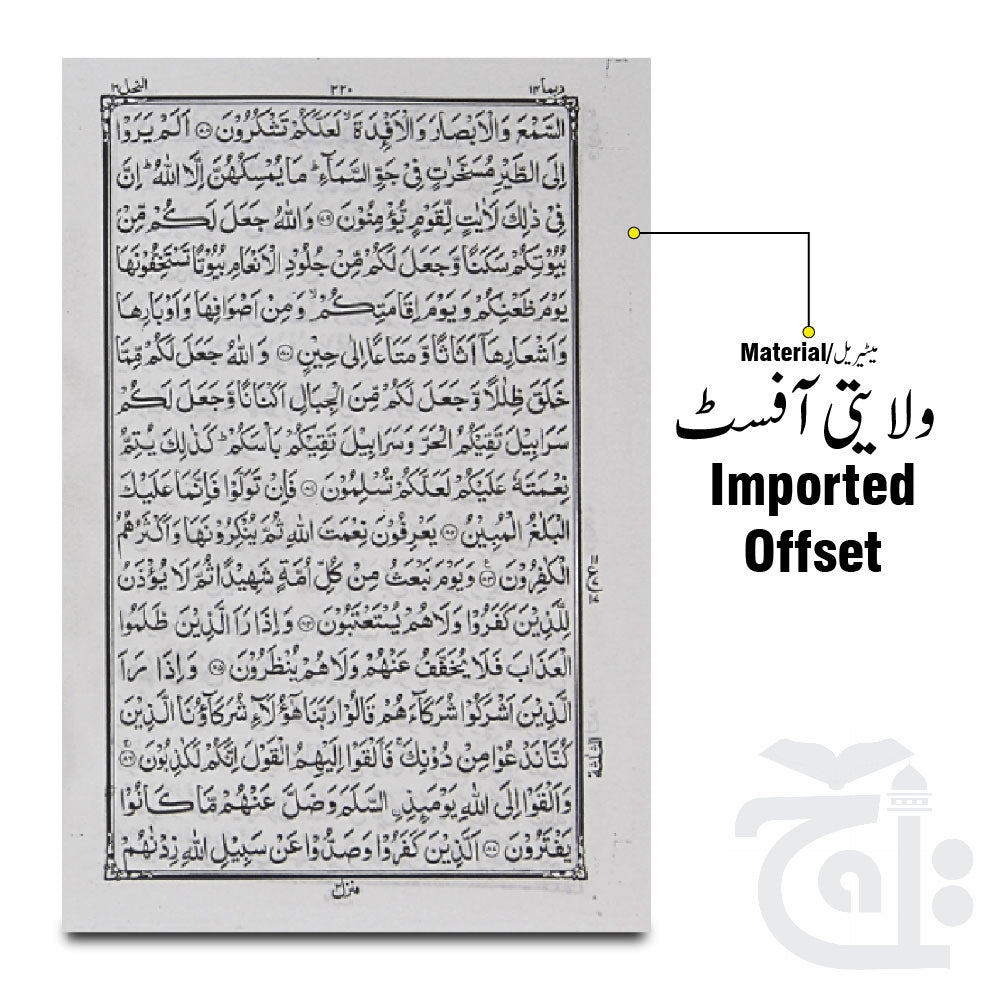 ربما ١٤
٢٢٠
النحل ١٦
السَّمْعَ وَالْاَبْصَارَ وَالْاَفْـِٕدَةَ ۙ لَعَلَّكُمْ تَشْكُرُوْنَ ﴿۷۸﴾ اَلَمْ يَرَوْا
اِلَى الطَّيْرِ مُسَخَّرٰتٍ فِيْ جَوِّ السَّمَآءِ ؕ مَا يُمْسِكُهُنَّ اِلَّا اللّٰهُ ؕ اِنَّ
فِيْ ذٰلِكَ لَاٰيٰتٍ لِّقَوْمٍ يُّؤْمِنُوْنَ ﴿۷۹﴾ وَاللّٰهُ جَعَلَ لَكُمْ مِّنْۢ
بُيُوْتِكُمْ سَكَنًا وَّجَعَلَ لَكُمْ مِّنْ جُلُوْدِ الْاَنْعَامِ بُيُوْتًا تَسْتَخِفُّوْنَهَا
يَوْمَ ظَعْنِكُمْ وَيَوْمَ اِقَامَتِكُمْ ۙ وَمِنْ اَصْوَافِهَا وَاَوْبَارِهَا
وَاَشْعَارِهَاۤ اَثَاثًا وَّمَتَاعًا اِلٰى حِيْنٍ ﴿۸۰﴾ وَاللّٰهُ جَعَلَ لَكُمْ مِّمَّا
خَلَقَ ظِلٰلًا وَّجَعَلَ لَكُمْ مِّنَ الْجِبَالِ اَكْنَانًا وَّجَعَلَ لَكُمْ
سَرَابِيْلَ تَقِيْكُمُ الْحَرَّ وَسَرَابِيْلَ تَقِيْكُمْ بَاْسَكُمْ ؕ كَذٰلِكَ يُتِمُّ
نِعْمَتَهٗ عَلَيْكُمْ لَعَلَّكُمْ تُسْلِمُوْنَ ﴿۸۱﴾ فَاِنْ تَوَلَّوْا فَاِنَّمَا عَلَيْكَ
الْبَلٰغُ الْمُبِيْنُ ﴿۸۲﴾ يَعْرِفُوْنَ نِعْمَتَ اللّٰهِ ثُمَّ يُنْكِرُوْنَهَا وَاَكْثَرُهُمُ
الْكٰفِرُوْنَ ﴿۸۳﴾ وَيَوْمَ نَبْعَثُ مِنْ كُلِّ اُمَّةٍ شَهِيْدًا ثُمَّ لَا يُؤْذَنُ
لِلَّذِيْنَ كَفَرُوْا وَلَا هُمْ يُسْتَعْتَبُوْنَ ﴿۸۴﴾ وَاِذَا رَاَ الَّذِيْنَ ظَلَمُوا
الْعَذَابَ فَلَا يُخَفَّفُ عَنْهُمْ وَلَا هُمْ يُنْظَرُوْنَ ﴿۸۵﴾ وَاِذَا رَاَ
الَّذِيْنَ اَشْرَكُوْا شُرَكَآءَهُمْ قَالُوْا رَبَّنَا هٰۤؤُلَآءِ شُرَكَآؤُنَا الَّذِيْنَ
كُنَّا نَدْعُوْا مِنْ دُوْنِكَ ۚ فَاَلْقَوْا اِلَيْهِمُ الْقَوْلَ اِنَّكُمْ لَكٰذِبُوْنَ ﴿۸۶﴾
وَاَلْقَوْا اِلَى اللّٰهِ يَوْمَئِذِ ۨ السَّلَمَ وَضَلَّ عَنْهُمْ مَّا كَانُوْا
يَفْتَرُوْنَ ﴿۸۷﴾ اَلَّذِيْنَ كَفَرُوْا وَصَدُّوْا عَنْ سَبِيْلِ اللّٰهِ زِدْنٰهُمْ
الثلثة
منزل ٣
Material/میٹیریل
ولایتی آفسٹ
Imported
Offset